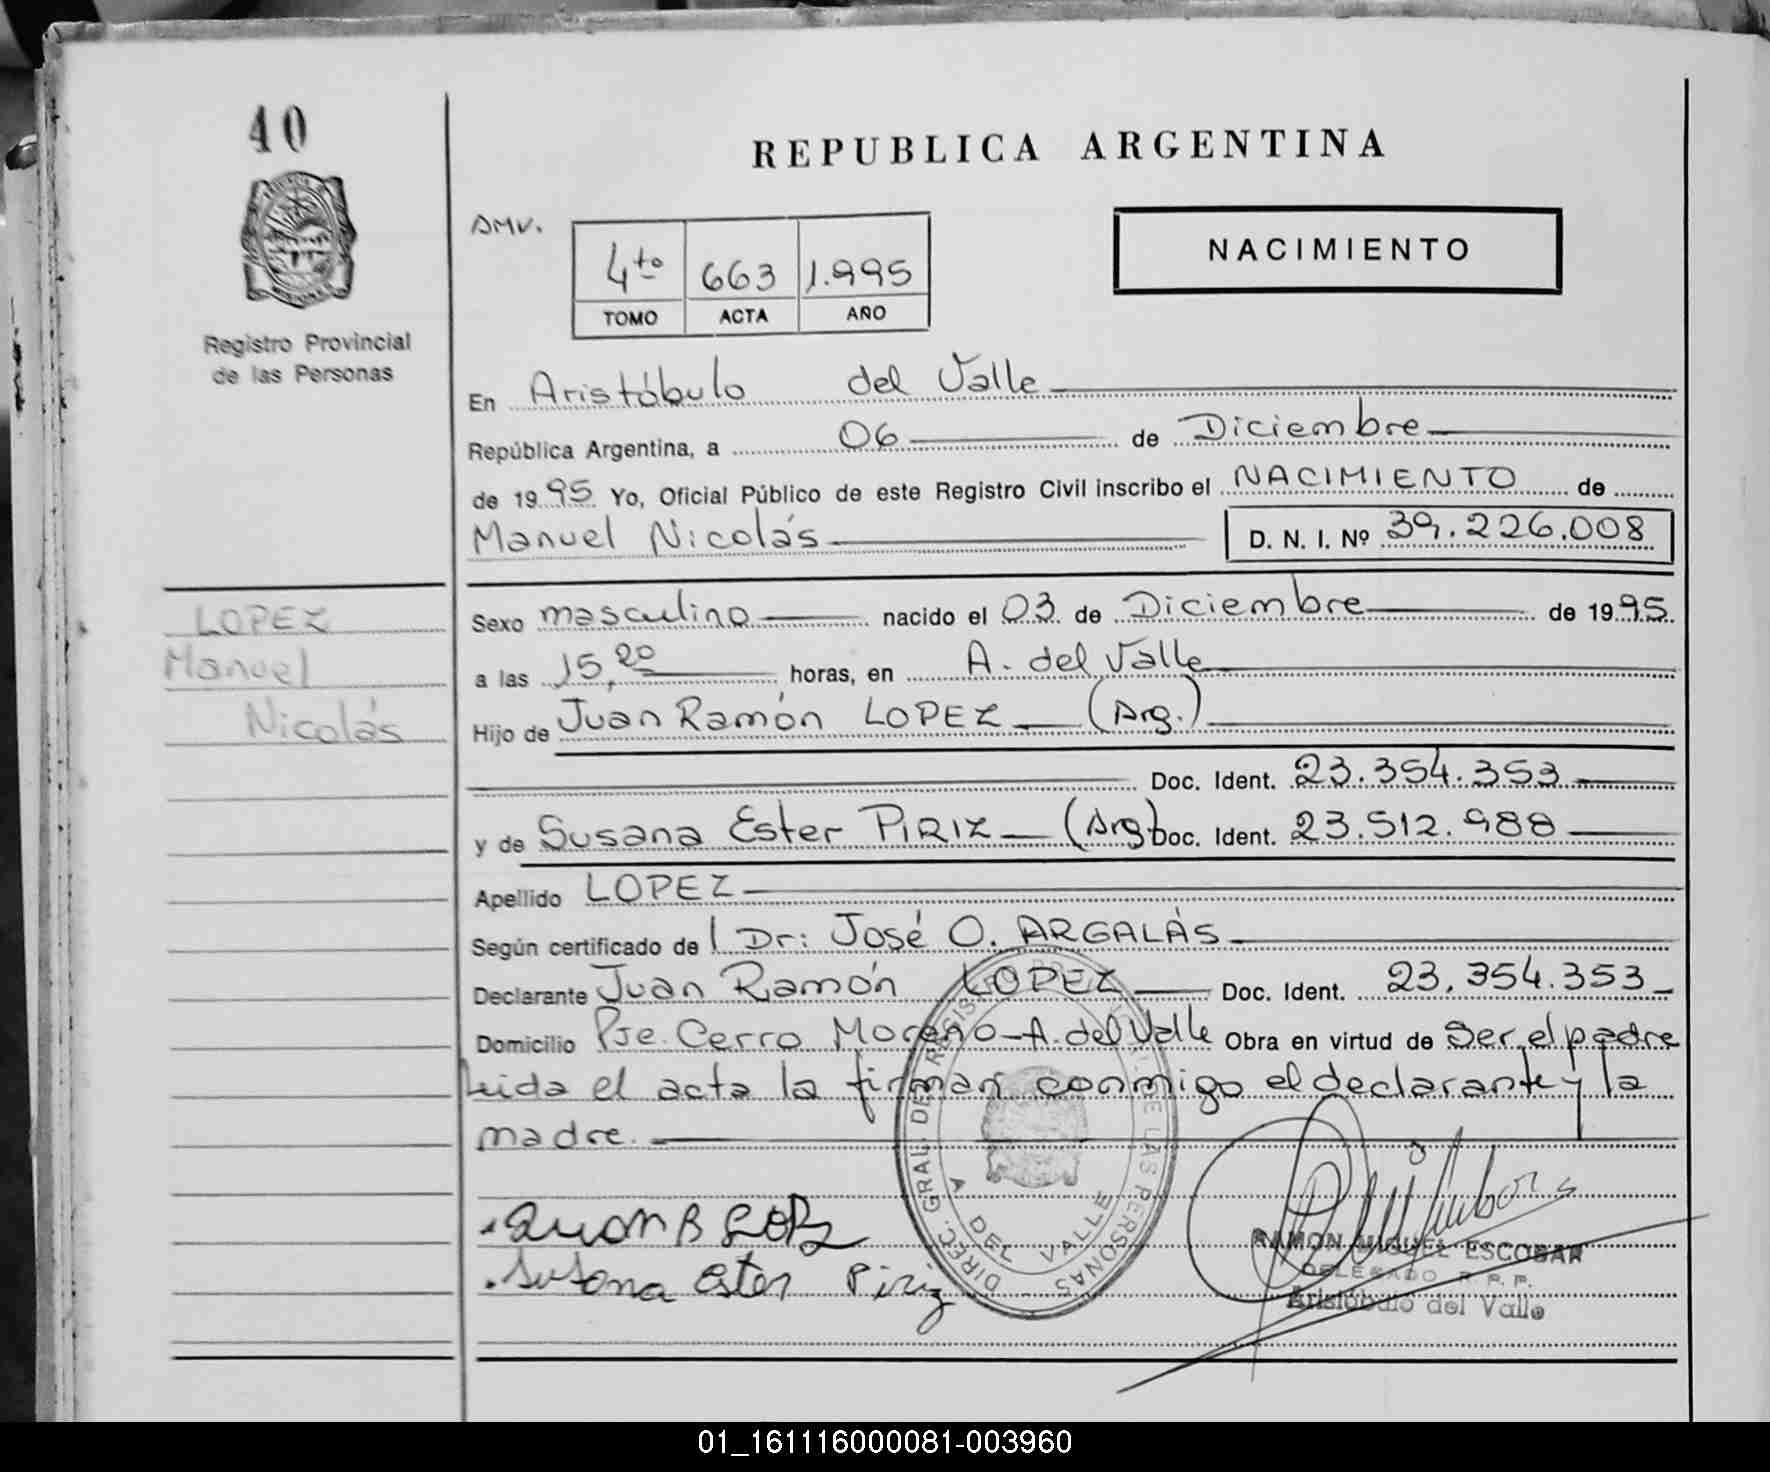 40
REPUBLICA ARGENTINA
Registro Provincial
de las Personas
DMV.
4to 663 1.995
TOMO ACTA AÑO
NACIMIENTO
En Aristóbulo del Valle
República Argentina, a 06 de Diciembre
de 1995 Yo, Oficial Público de este Registro Civil inscribo el NACIMIENTO de
Manuel Nicolás D. N. I. Nº 39.226.008
LOPEZ
Manuel
Nicolás
Sexo masculino nacido el 03 de Diciembre de 1995
a las 15,20 horas, en A. del Valle
Hijo de Juan Ramón LOPEZ (Arg.)
Doc. Ident. 23.354.353
y de Susana Ester PIRIZ (Arg) Doc. Ident. 23.512.988
Apellido LOPEZ
Según certificado de l Dr: José O. ARGALÁS
Declarante Juan Ramón LOPEZ Doc. Ident. 23.354.353
Domicilio Pje. Cerro Moreno - A. del Valle Obra en virtud de Ser el padre
Leida el acta la firman conmigo el declarante y la
madre.
Susana Ester Piriz
DIREC. GRAL. DE REGIST DE LAS PERSONAS
A DEL VALLE
RAMON MIGUEL ESCOBAR
DELEGADO R. P. P.
Aristóbulo del Valle
01_161116000081-003960